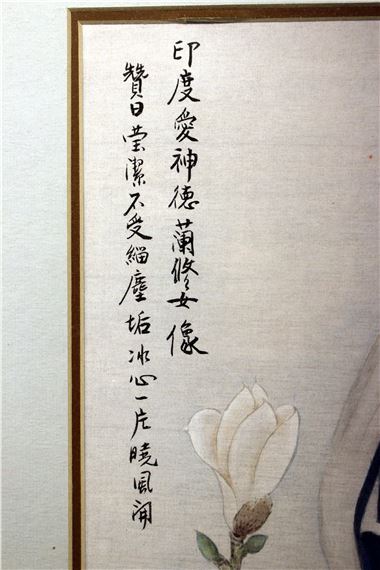 印度愛神德蘭修女像
贊曰瑩潔不受緇塵垢冰心一片曉風開